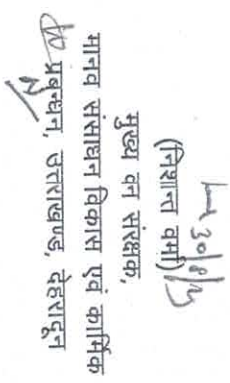 30/8/25
(निशान्त वर्मा)
मुख्य वन संरक्षक,
मानव संसाधन विकास एवं कार्मिक
प्रबन्धन, उत्तराखण्ड, देहरादून